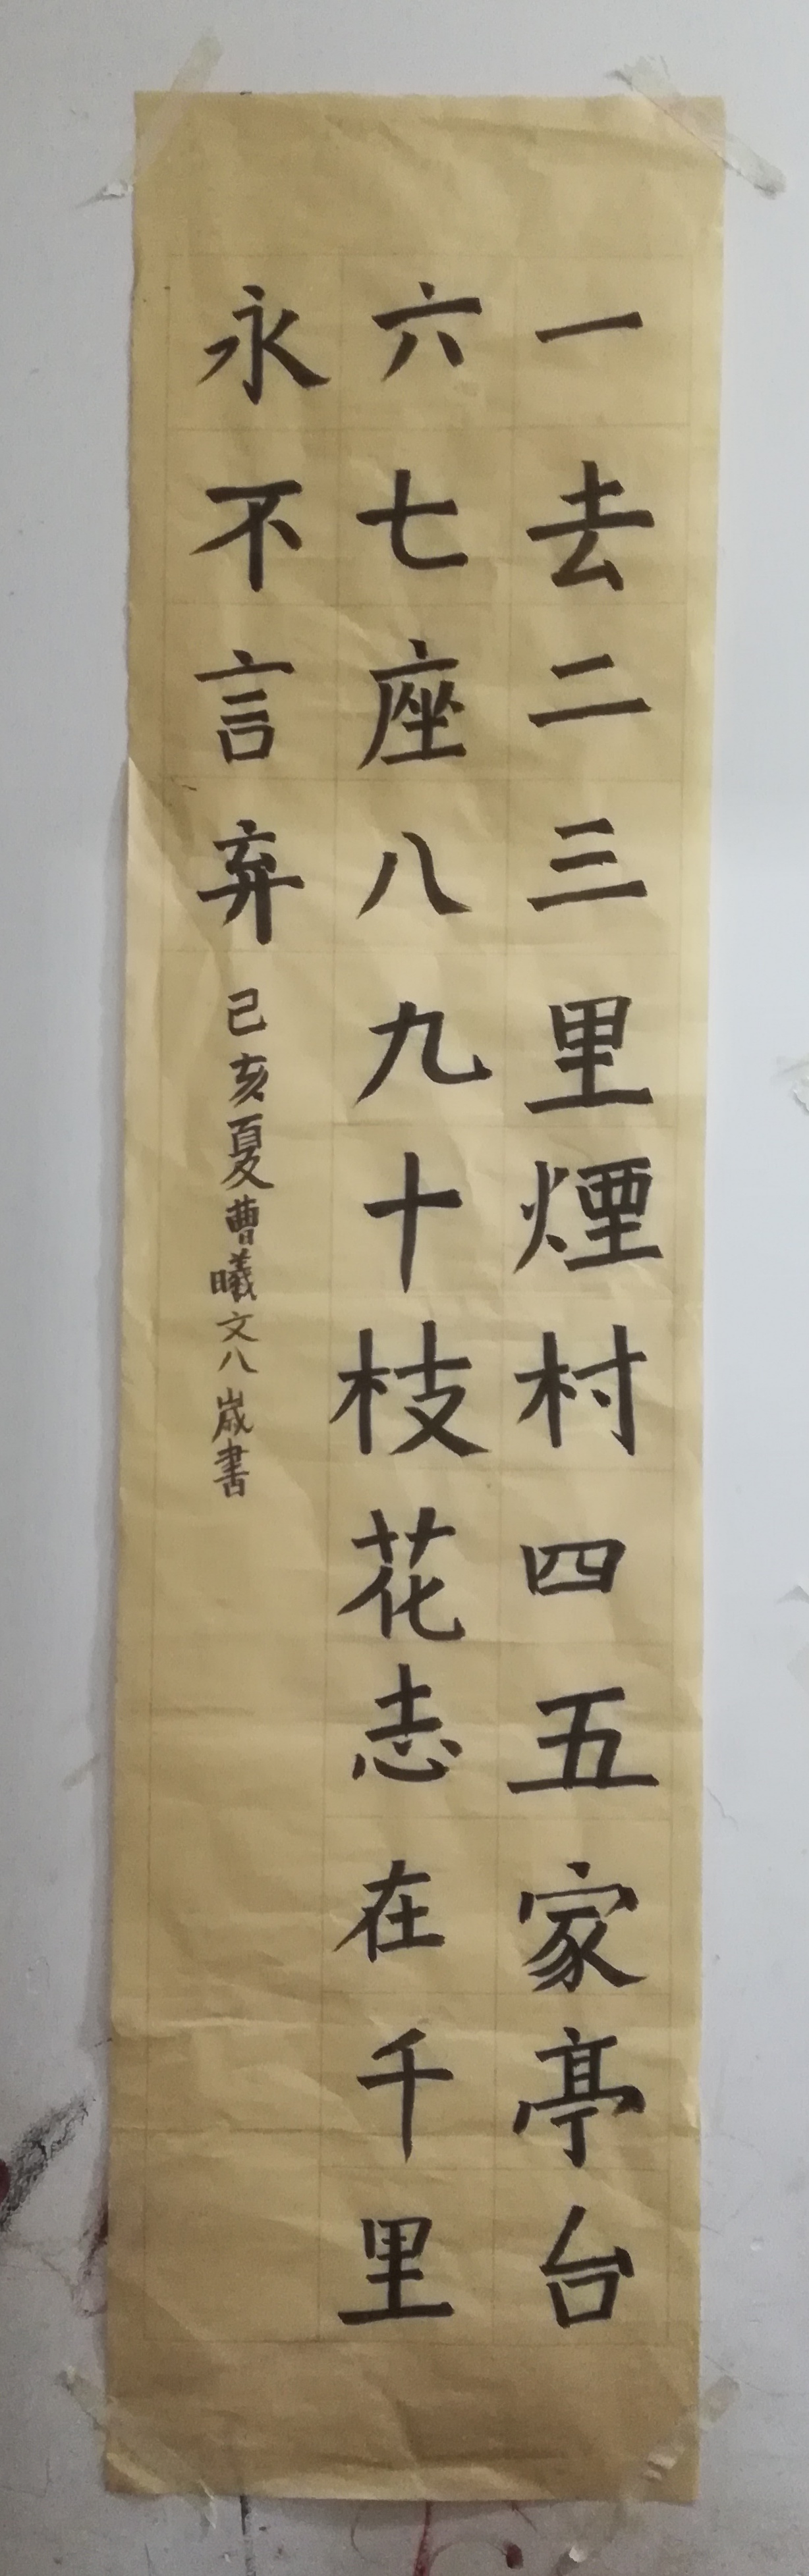 一去二三里煙村四五家亭台
六七座八九十枝花志在千里
永不言弃
己亥夏曹曦文八歲書